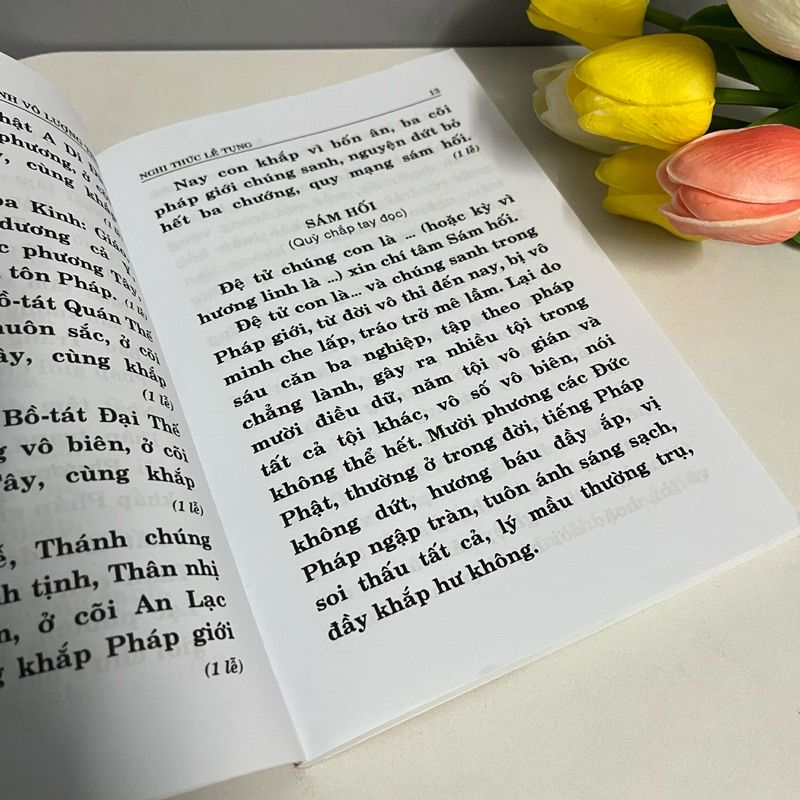 VÔ LƯỢNG
A Di
phương, ở
cùng khắp
Kinh: Giáo
dương cả
phương Tây,
tôn Pháp.
Bồ-tát Quán Thế
muôn sắc, ở cõi
cùng khắp
(1 lễ)
Bồ-tát Đại Thế
vô biên, ở cõi
Tây, cùng khắp
(1 lễ)
Thánh chúng
tịnh, Thân nhị
ở cõi An Lạc
khắp Pháp giới
(1 lễ)
NGHI THỨC LỄ TỤNG 13
Nay con khắp vì bốn ân, ba cõi
pháp giới chúng sanh, nguyện dứt bỏ
hết ba chướng, quy mạng sám hối.
(1 lễ)
SÁM HỐI
(Quỳ chắp tay đọc)
Đệ tử chúng con là ... (hoặc kỳ vì
hương linh là ...) xin chí tâm Sám hối.
Đệ tử con là... và chúng sanh trong
Pháp giới, từ đời vô thỉ đến nay, bị vô
minh che lấp, tráo trở mê lầm. Lại do
sáu căn ba nghiệp, tập theo pháp
chẳng lành, gây ra nhiều tội trong
mười điều dữ, năm tội vô gián và
tất cả tội khác, vô số vô biên, nói
không thể hết. Mười phương các Đức
Phật, thường ở trong đời, tiếng Pháp
không dứt, hương báu đầy ắp, vị
Pháp ngập tràn, tuôn ánh sáng sạch,
soi thấu tất cả, lý mầu thường trụ,
đầy khắp hư không.